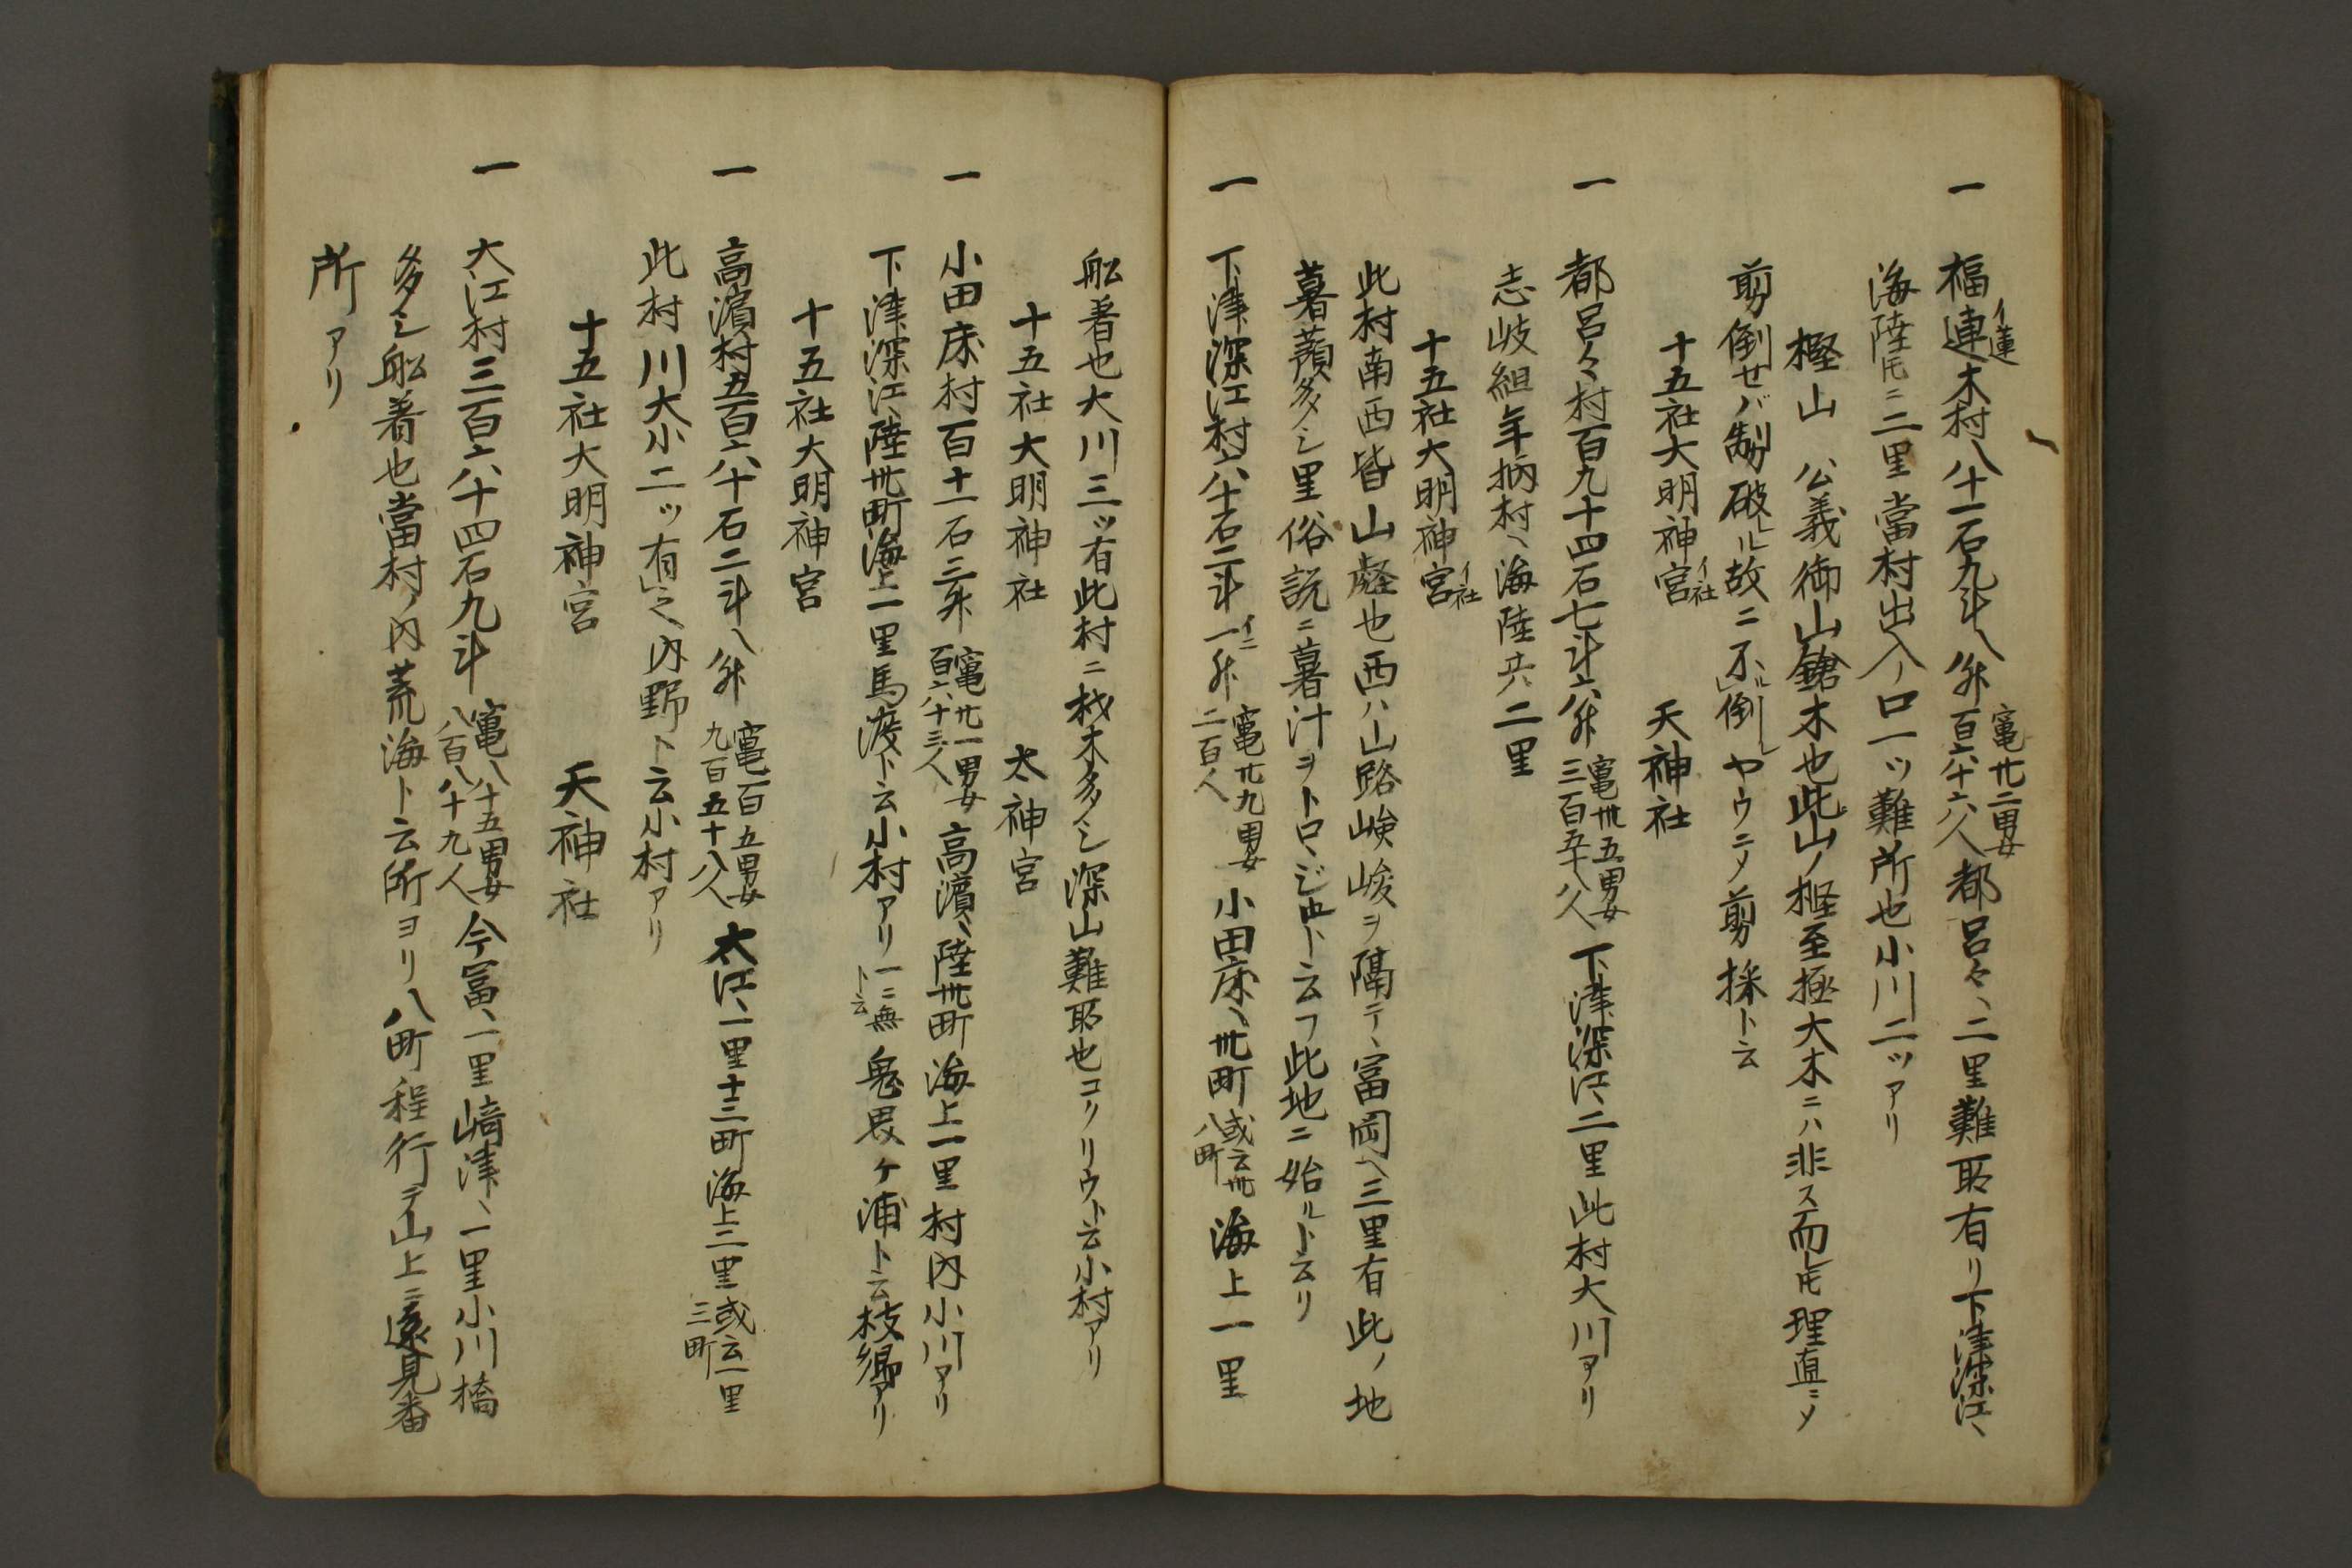 一 福連木村八十一石九斗八升 竈廿二男女百六十六人 都呂々ヘ二里難所有リ下津深江ヘ
イ蓮
海陸トモニ二里當村出入ノ口一ツ難所也小川二ツアリ
樫山 公義御山鎗木也此山ノ樫至極大木ニハ非ス而トモ理直ニメ
剪倒セバ制破ル故ニ不倒ヤウニメ剪採ト云
十五社大明神宮イ社 天神社
一 都呂々村百九十四石七斗六升 竈卅五男女三百五十八人 下津深江ヘ二里此村大川アリ
志岐組年柄村ヘ海陸共二里
十五社大明神宮イ社
此村南西皆山壑也西ハ山路嶮峻ヲ隔テヽ富岡ヘ三里有此ノ地
暮蕷多シ里俗説ニ暮汁ヲトロヽジ占ト云フ此地ニ始ルト云リ
一 下津深江村六十石二斗一升イニ 竈廿九男女二百人 小田床ヘ卅町或云卅八町 海上一里
舩着也大川三ツ有此村ニ材木多シ深山難所也コリリウト云小村アリ
十五社大明神社 太神宮
一 小田床村百十一石三升 竈廿一男女百六十三人 高濵ヘ陸卅町海上一里村内小川アリ
下津深江ヘ陸卅町海上一里馬渡ト云小村アリ一ニ無ト云 鬼畏ケ浦ト云枝郷アリ
十五社大明神宮
一 高濵村五百六十石二斗八升 竈一百五男女九百五十八人 大江ヘ一里十三町海上二里或云一里三町
此村川大小二ツ有之内野ト云小村アリ
十五社大明神宮 天神社
一 大江村三百六十四石九斗 竈八十五男女八百八十九人 今冨ヘ一里﨑津ヘ一里小川橋
多シ舩着也當村ノ内荒海ト云所ヨリ八町程行テ山上ニ遠見番
所アリ